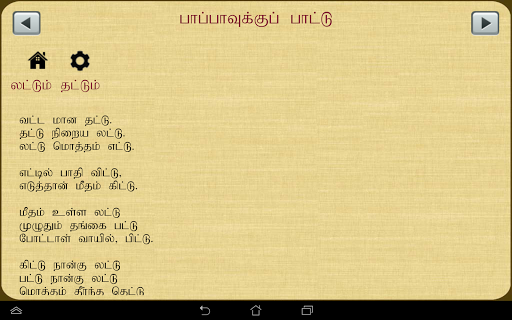 பாப்பாவுக்குப் பாட்டு
லட்டும் தட்டும்
வட்ட மான தட்டு.
தட்டு நிறைய லட்டு.
லட்டு மொத்தம் எட்டு.
எட்டில் பாதி விட்டு,
எடுத்தான் மீதம் கிட்டு.
மீதம் உள்ள லட்டு
முழுதும் தங்கை பட்டு
போட்டாள் வாயில், பிட்டு.
கிட்டு நான்கு லட்டு
பட்டு நான்கு லட்டு
மொத்தம் தீர்ந்த தெட்டு